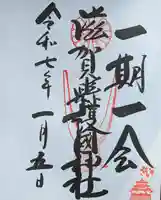 一期一会
滋賀縣護國神社
令和七年
一月五日